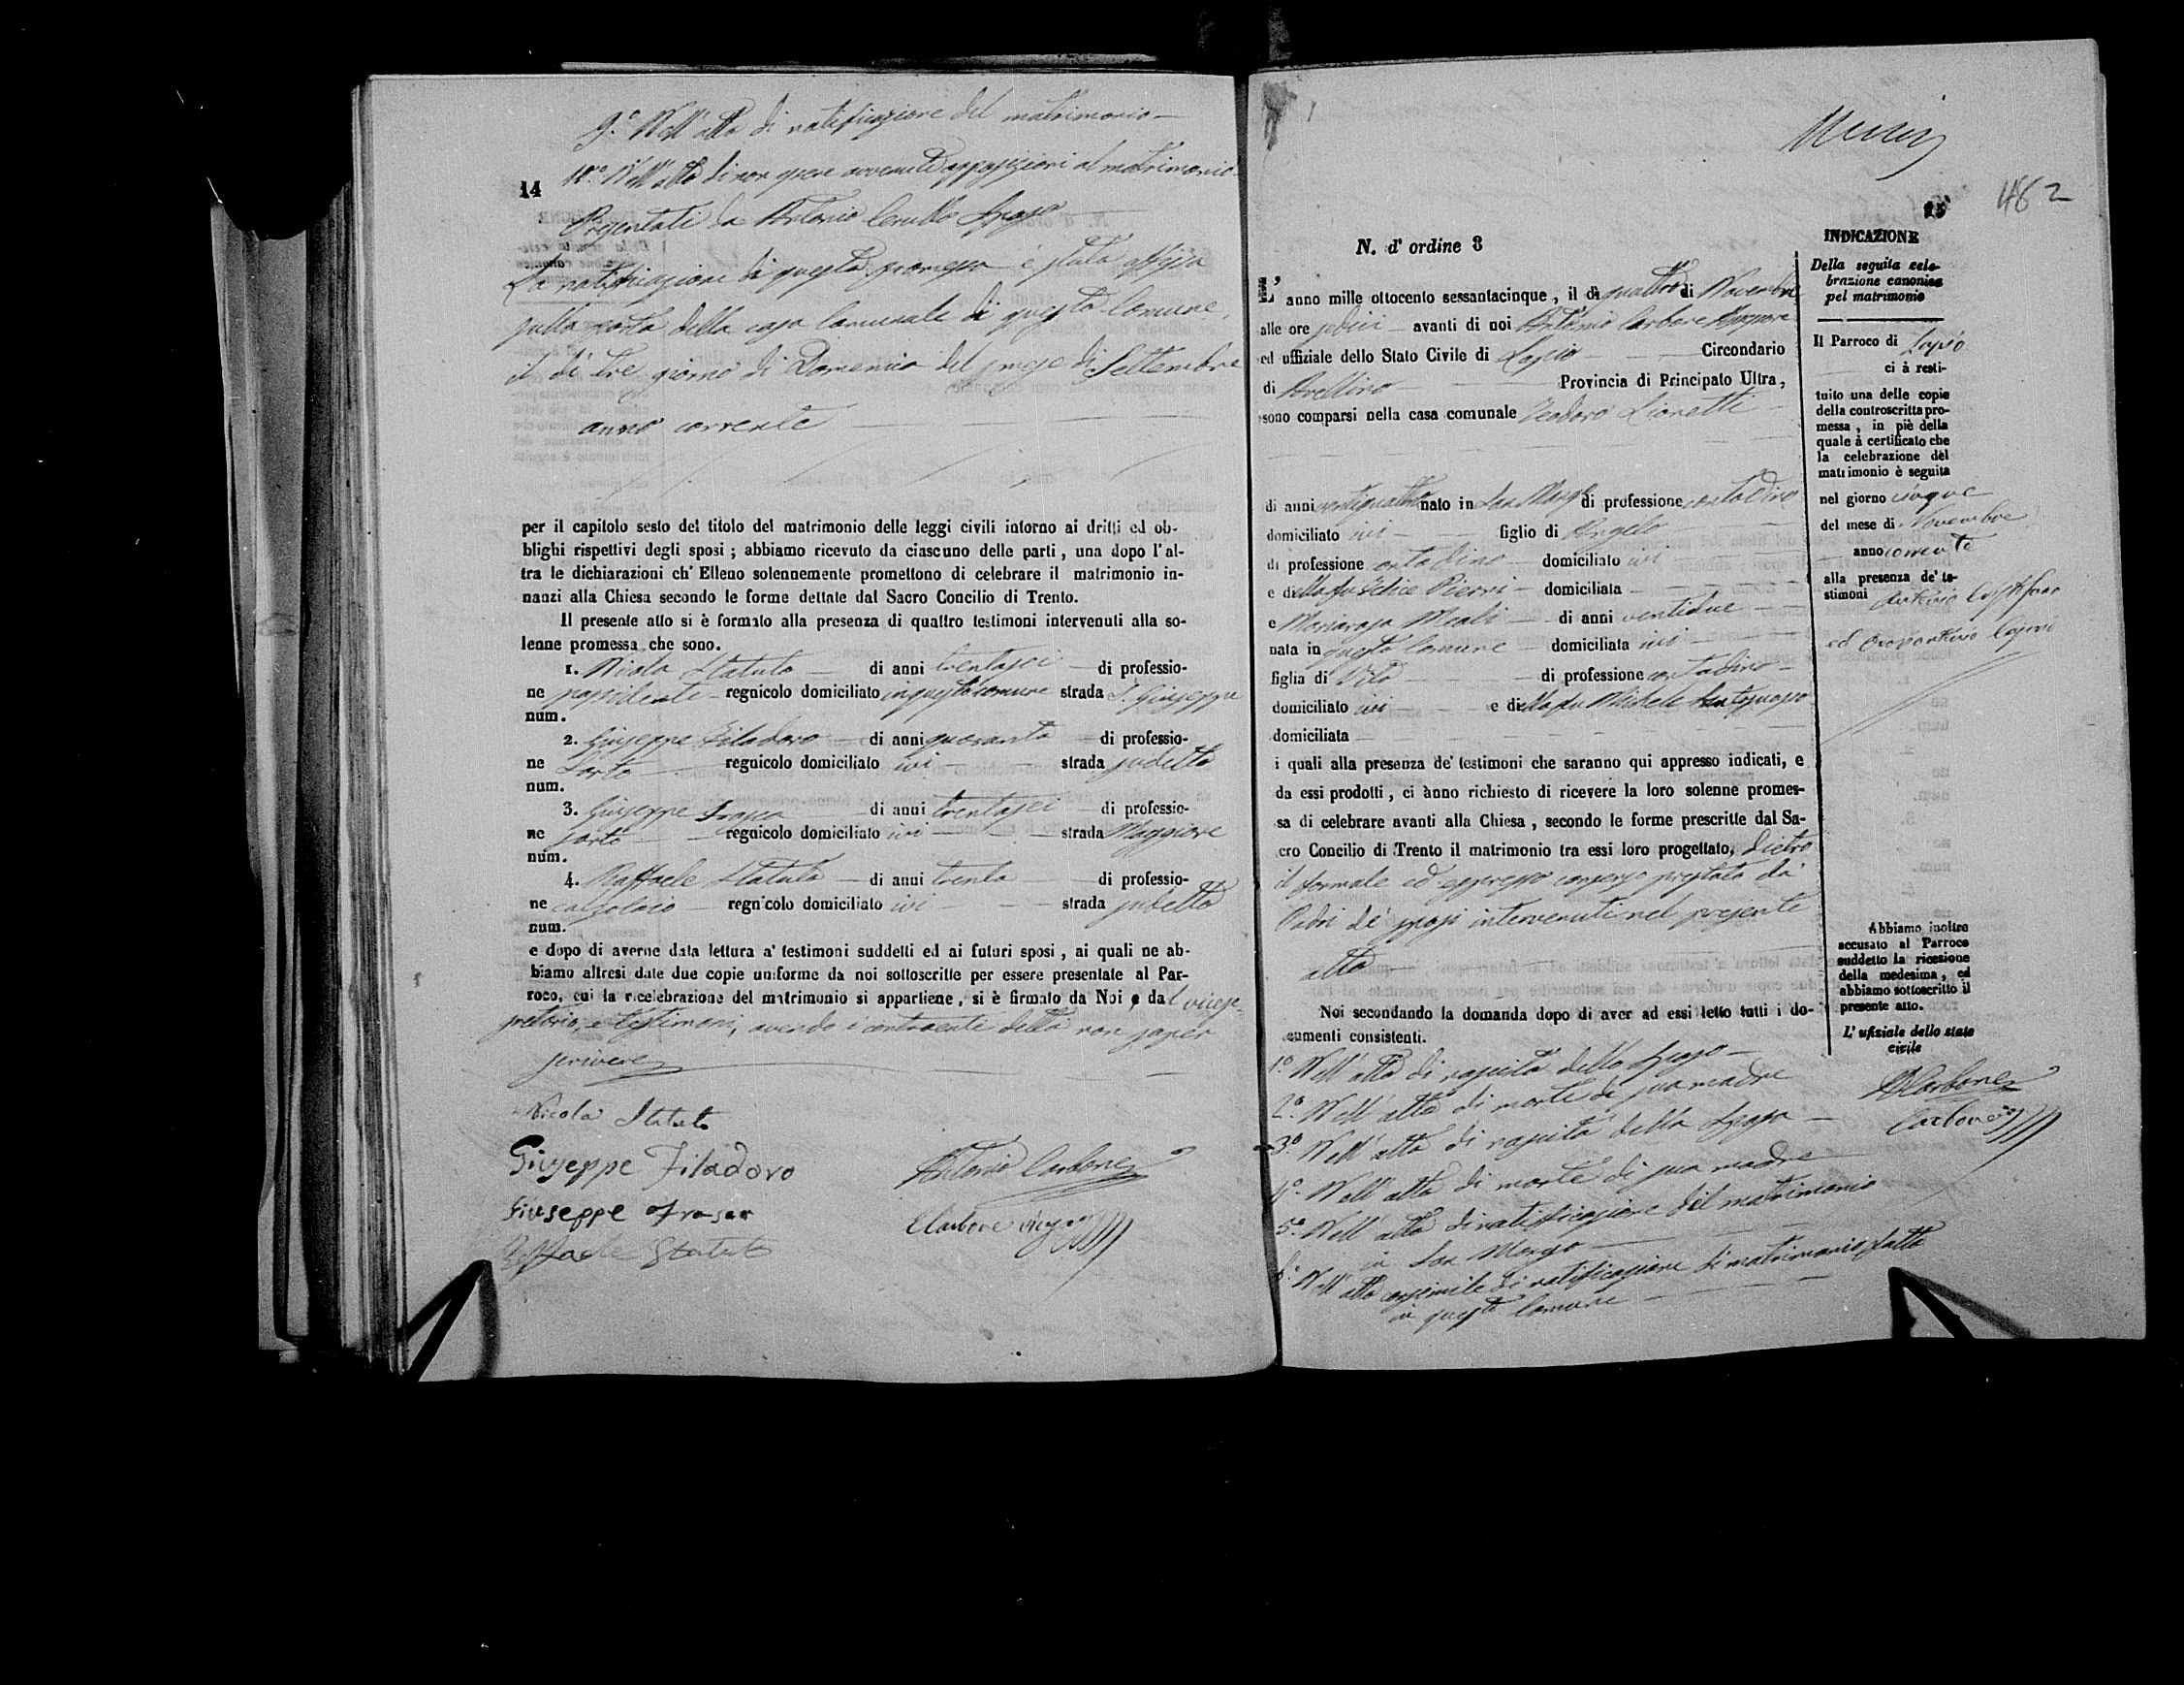 9.° Nell'atto di notificazione del matrimonio —
10.° Nell'atto di non essere avvenute opposizioni al matrimonio
14
Presentati da Antonio Sposo
La notificazione di questa promessa è stata affissa
sulla porta della casa Comunale di questo Comune,
il dì tre giorno di Domenica del mese di Settembre
anno corrente
per il capitolo sesto del titolo del matrimonio delle leggi civili intorno ai dritti ed ob-
blighi rispettivi degli sposi ; abbiamo ricevuto da ciascuno delle parti , una dopo l'al-
tra le dichiarazioni ch' Elleno solennemente promettono di celebrare il matrimonio in-
nanzi alla Chiesa secondo le forme dettate dal Sacro Concilio di Trento.
Il presente atto si è formato alla presenza di quattro testimoni intervenuti alla so-
lenne promessa che sono.
1. Nicola Statuto — di anni trentasei — di professio-
ne possidente — regnicolo domiciliato in questo comune strada S. Giuseppe
num.
2. Giuseppe Filadoro — di anni quaranta — di professio-
ne Sarto — regnicolo domiciliato ivi — strada sudetta
num.
3. Giuseppe Frasca — di anni trentasei — di professio-
ne sarto — regnicolo domiciliato ivi — strada Maggiore
num.
4. Raffaele Statuto — di anni trenta — di professio-
ne calzolaio — regnicolo domiciliato ivi — strada sudetta
num.
e dopo di averne data lettura a' testimoni suddetti ed ai futuri sposi , ai quali ne ab-
biamo altresi date due copie uniforme da noi sottoscritte per essere presentate al Par-
roco, cui la ricelebrazione del matrimonio si appartiene , si è firmato da Noi e dal vicese-
gretario, e testimoni, avendo i contraenti detto non saper
scrivere
Nicola Statuto
Giuseppe Filadoro
Antonio Carbone
Giuseppe Frasca
Carbone
Raffaele Statuto
482
15
N. d' ordine 8
L' anno mille ottocento sessantacinque , il dì quattro di Novembre
alle ore sedici — avanti di noi Antonio Carbone Assessore
ed uffiziale dello Stato Civile di Lapio — Circondario
di Avellino — Provincia di Principato Ultra,
sono comparsi nella casa comunale Teodoro Lionetti —
di anni ventiquattro nato in San Mango di professione contadino
domiciliato ivi — figlio di Angelo —
di professione contadino — domiciliato ivi
e di Felice Pierri — domiciliata —
e Mariarosa Meoli — di anni ventidue —
nata in questo Comune — domiciliata ivi —
figlia di Vito — di professione contadino —
domiciliato ivi — e di Michele
domiciliata —
i quali alla presenza de' testimoni che saranno qui appresso indicati, e
da essi prodotti , ci ànno richiesto di ricevere la loro solenne promes-
sa di celebrare avanti alla Chiesa , secondo le forme prescritte dal Sa-
cro Concilio di Trento il matrimonio tra essi loro progettato, dietro
il formale ed espresso consenso prestato da'
Padri de' sposi intervenuti nel presente
atto —
Noi secondando la domanda dopo di aver ad essi letto tutti i do-
cumenti consistenti.
1.° Nell'atto di nascita dello Sposo —
2.° Nell'atto di morte di sua madre
3.° Nell'atto di nascita della Sposa —
4.° Nell'atto di morte di sua madre —
5.° Nell'atto di notificazione del matrimonio
in San Mango —
6.° Nell'atto consimile di notificazione di matrimonio fatto
in questo Comune —
INDICAZIONE
Della seguita cele-
brazione canonica
pel matrimonio
Il Parroco di Lapio
ci à resti-
tuito una delle copie
della controscritta pro-
messa , in piè della
quale à certificato che
la celebrazione del
matrimonio è seguita
nel giorno cinque
del mese di Novembre
anno corrente
alla presenza de' te-
stimoni Antonio
ed
Abbiamo inoltre
accusato al Parroco
suddetto la ricezione
della medesima , ed
abbiamo sottoscritto il
presente atto.
L' ufiziale dello stato
civile
A Carbone
Carbone